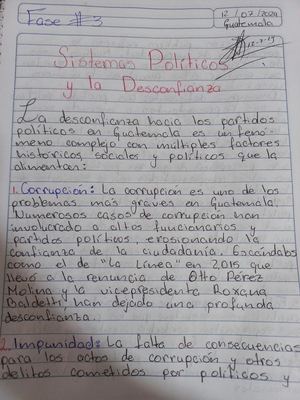 Fase #3
12/07/2024
Guatemala
12-7-24
Sistemas Políticos
y la Desconfianza
La desconfianza hacia los partidos
políticos en Guatemala es un fenó-
meno complejo con múltiples factores
históricos, sociales y políticos que la
alimentan:
1. Corrupción: La corrupción es uno de los
problemas más graves en Guatemala.
Numerosos casos de corrupción han
involucrado a altos funcionarios y
partidos políticos, erosionando la
confianza de la ciudadanía. Escándalos
como el de "La Línea" en 2015 que
llevó a la renuncia de Otto Pérez
Molina y la vicepresidenta Roxana
Baldetti han dejado una profunda
desconfianza.
2. Impunidad: La falta de consecuencias
para los actos de corrupción y otros
delitos cometidos por políticos y